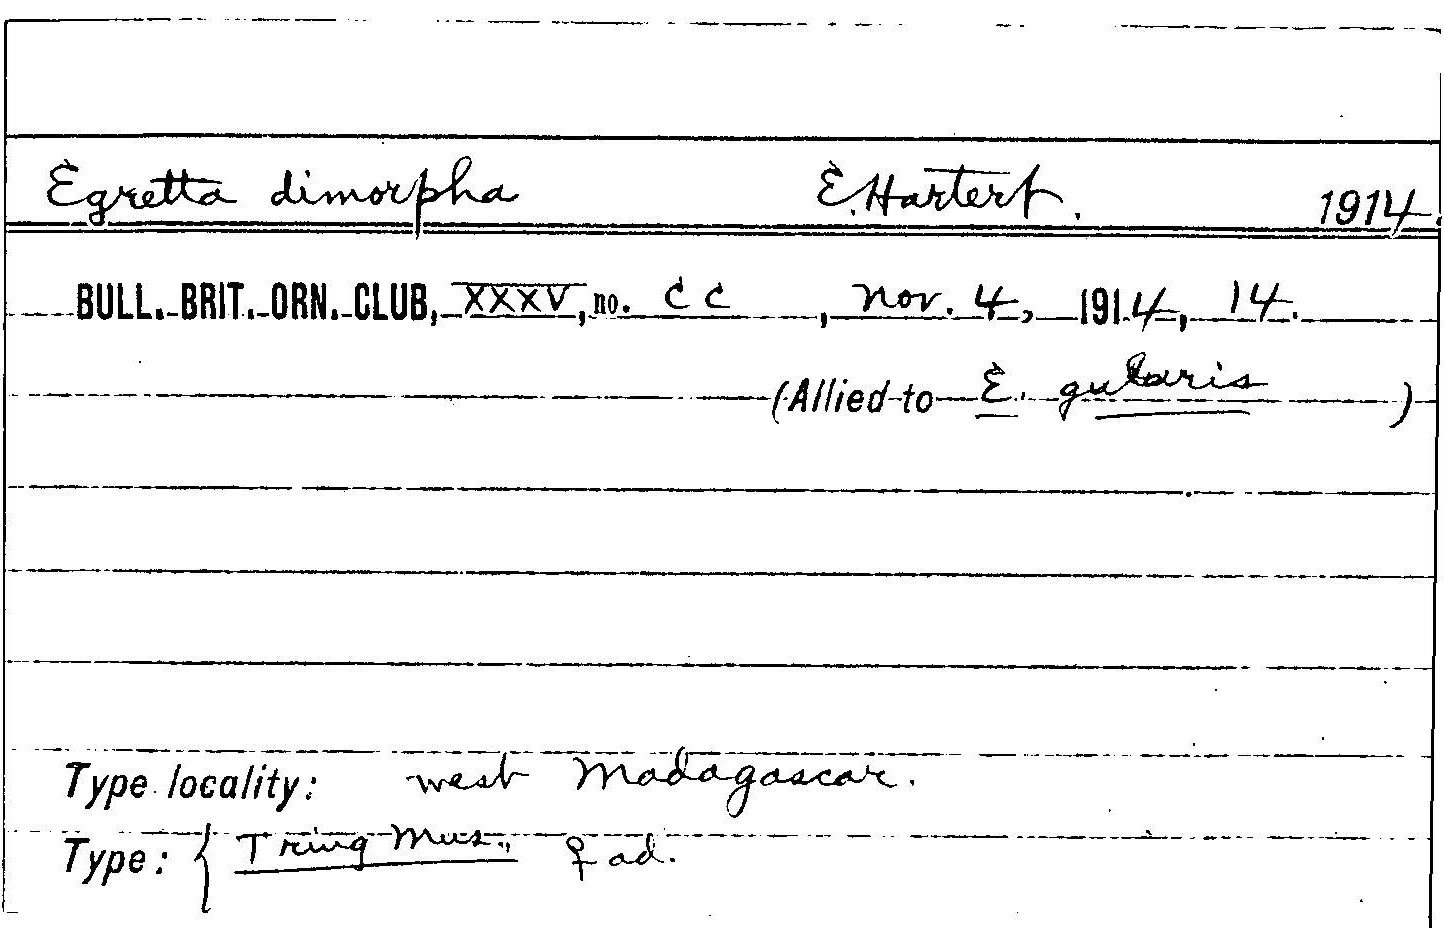 Egretta dimorpha E. Hartert. 1914.
BULL. BRIT. ORN. CLUB, XXXV, no. CC, Nov. 4, 1914, 14.
(Allied to E. gularis )
Type locality: west Madagascar.
Type: { Tring Mus., ♀ ad.